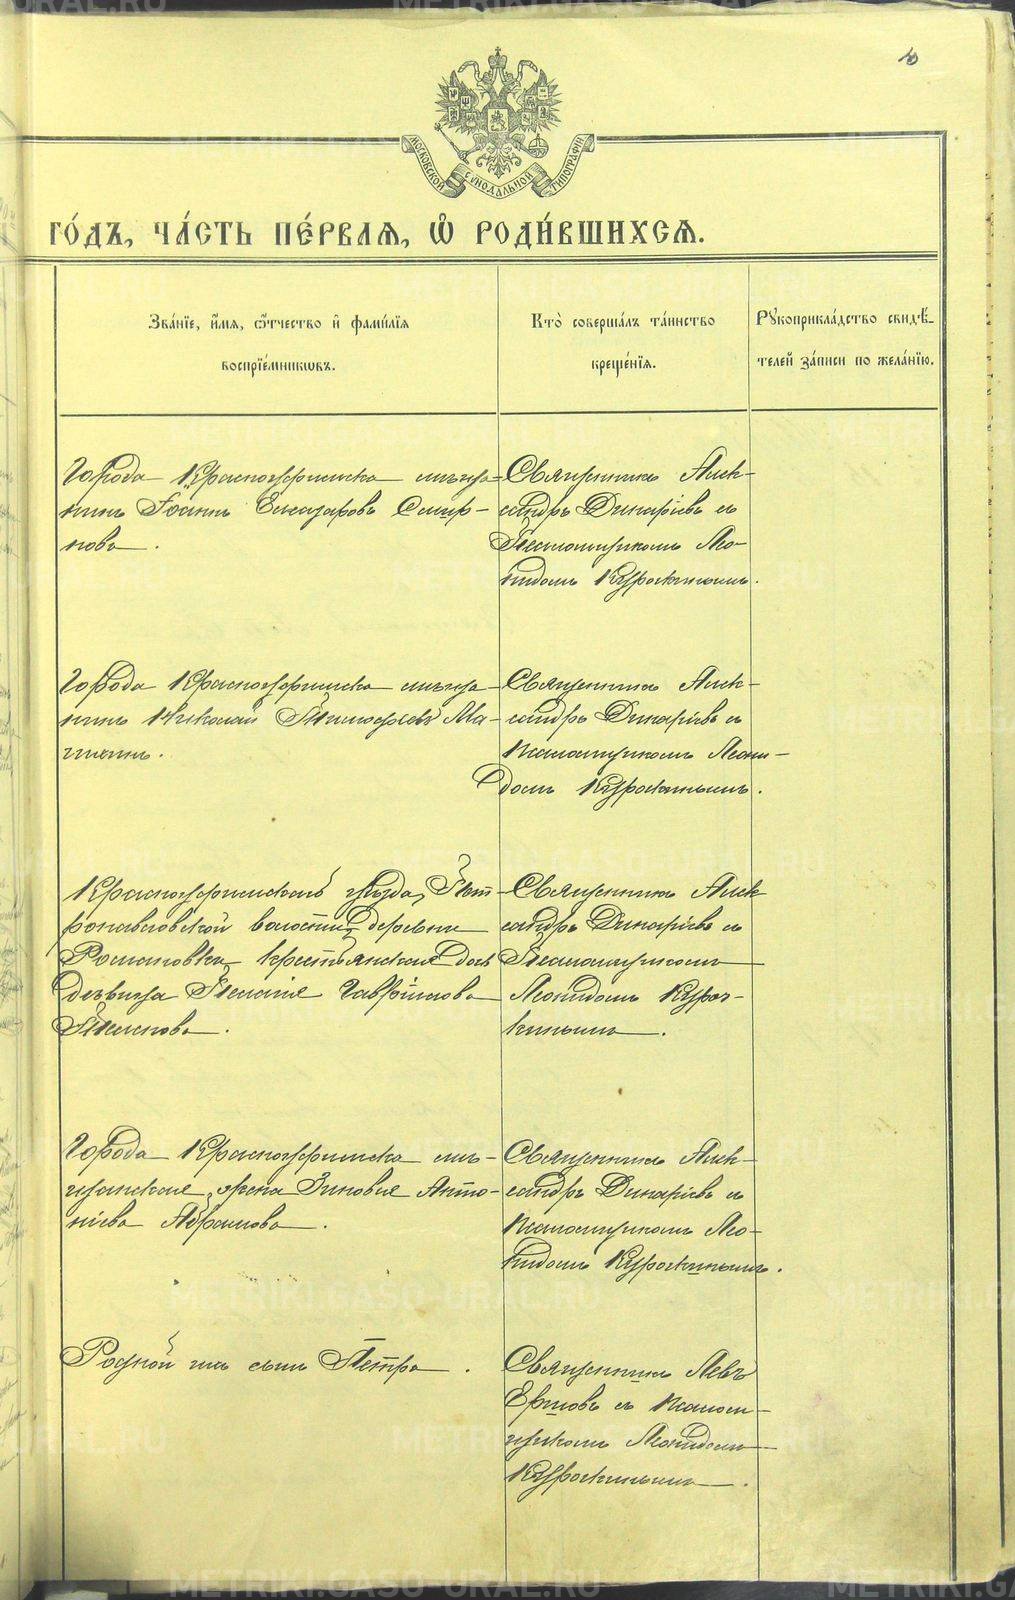 10
МОСКОВСКОЙ СѴНОДАЛЬНОЙ ТИПОГРАФІИ
ГО́ДЪ, ЧА́СТЬ ПЕ́РВАЯ, Ѽ РОДИ́ВШИХСЯ.
Зва́нїе, и҆́мѧ, ѻ҆́тчество и҆ фами́лїѧ
воспрїе́мникѡвъ.
Кто̀ соверша́лъ та́инство
креще́нїѧ.
Рꙋкоприкла́дство свидѣ́-
телей за́писи по жела́нїю.
Города Красноуфимска мѣща-
нинъ Іоаннъ Елеазаровъ Смир-
новъ.
Священникъ Алек-
сандръ Динаріевъ съ
Псаломщикомъ Лео-
нидомъ Курочкинымъ.
Города Красноуфимска мѣща-
нинъ Николай Тимофеевъ
Священникъ Алек-
сандръ Динаріевъ съ
Псаломщикомъ Леони-
домъ Курочкинымъ.
Красноуфимскаго уѣзда, Пет-
ропавловской волости, деревни
Романовки, крестьянская дочь
дѣвица Пелагія Гавріилова
Священникъ Алек
сандръ Динаріевъ съ
Псаломщикомъ
Леонидомъ Куроч-
кинымъ.
Города Красноуфимска мѣ-
щанская жена Зиновія Анто-
ніева Абрамова.
Священникъ Алек-
сандръ Динаріевъ съ
Псаломщикомъ Лео-
нидомъ Курочкинымъ.
Родной ихъ сынъ Петръ.
Священникъ Левъ
Ершовъ съ Псалом-
щикомъ Леонидомъ
Курочкинымъ.
METRIKI.GASO-URAL.RU